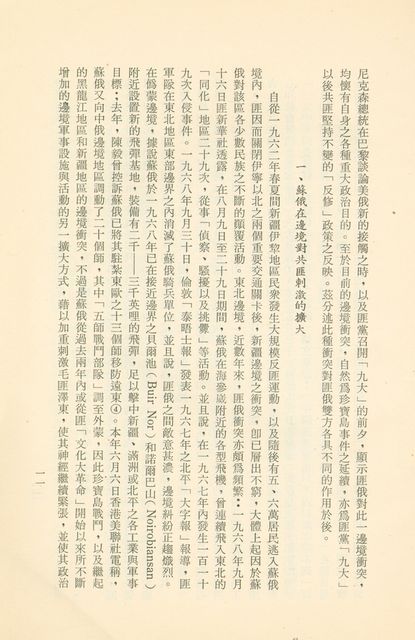 尼克森總統在巴黎談論美俄新的接觸之時，以及匪黨召開「九大」的前夕，顯示匪俄對此一邊境衝突，
均懷有自身之各種重大政治目的。至於目前的邊境衝突，自然爲珍寶島事件之延續，亦爲匪黨「九大」
以後共匪堅持不變的「反修」政策之反映。茲分述此種衝突對匪俄雙方各具不同的作用於後。
一、蘇俄在邊境對共匪刺激的擴大
自從一九六二年春夏間新疆伊犂地區民衆發生大規模反匪運動，以及隨後有五、六萬居民逃入蘇俄
境內，匪因而關閉伊寧以北之兩個重要交通關卡後，新疆邊境之衝突，卽已層出不窮，大體上起因於蘇
俄對該區各少數民族之不斷的顛覆活動。東北邊境，近數年來，匪俄衝突亦頗爲頻繁：一九六八年九月
十六日匪新華社透露，在八月九日至二十九日期間，蘇俄在海參崴附近的各型飛機，曾連續飛入東北的
「同化」地區二十九次，從事「偵察、騷擾以及挑釁」等活動。並且說，在一九六七年內發生一百一十
九次入侵事件。一九六八年九月三十日，倫敦「泰晤士報」發表一九六七年之北平「大字報」報導，匪
軍隊在東北地區東部邊界之內消滅了蘇俄騎兵單位，並且說，匪俄之間敵意甚濃，邊境糾紛正趨熾烈。
在僞蒙邊境，據說蘇俄於一九六八年已在接近邊界之貝爾池（Buir Nor）和諾爾巴三（Noirobiansan）
附近設置新的飛彈基地，裝備有二千——三千英哩的飛彈，足以擊中新疆、滿洲或北平之各工業與軍事
目標；去年，陳毅曾控訴蘇俄已將其駐紮東歐之十三個師移防遠東④。本年六月六日香港美聯社電稱，
蘇俄又向中俄邊境地區調動了二十個師，其中「五師戰鬥部隊」調至外蒙，因此珍寶島戰鬥，以及繼起
的黑龍江地區和新疆地區的邊境衝突，不過是蘇俄從過去兩年內或從匪「文化大革命」開始以來所不斷
增加的邊境軍事設施與活動的另一擴大方式，藉以加重刺激毛匪澤東，使其神經繼續緊張，並使其政治
一一